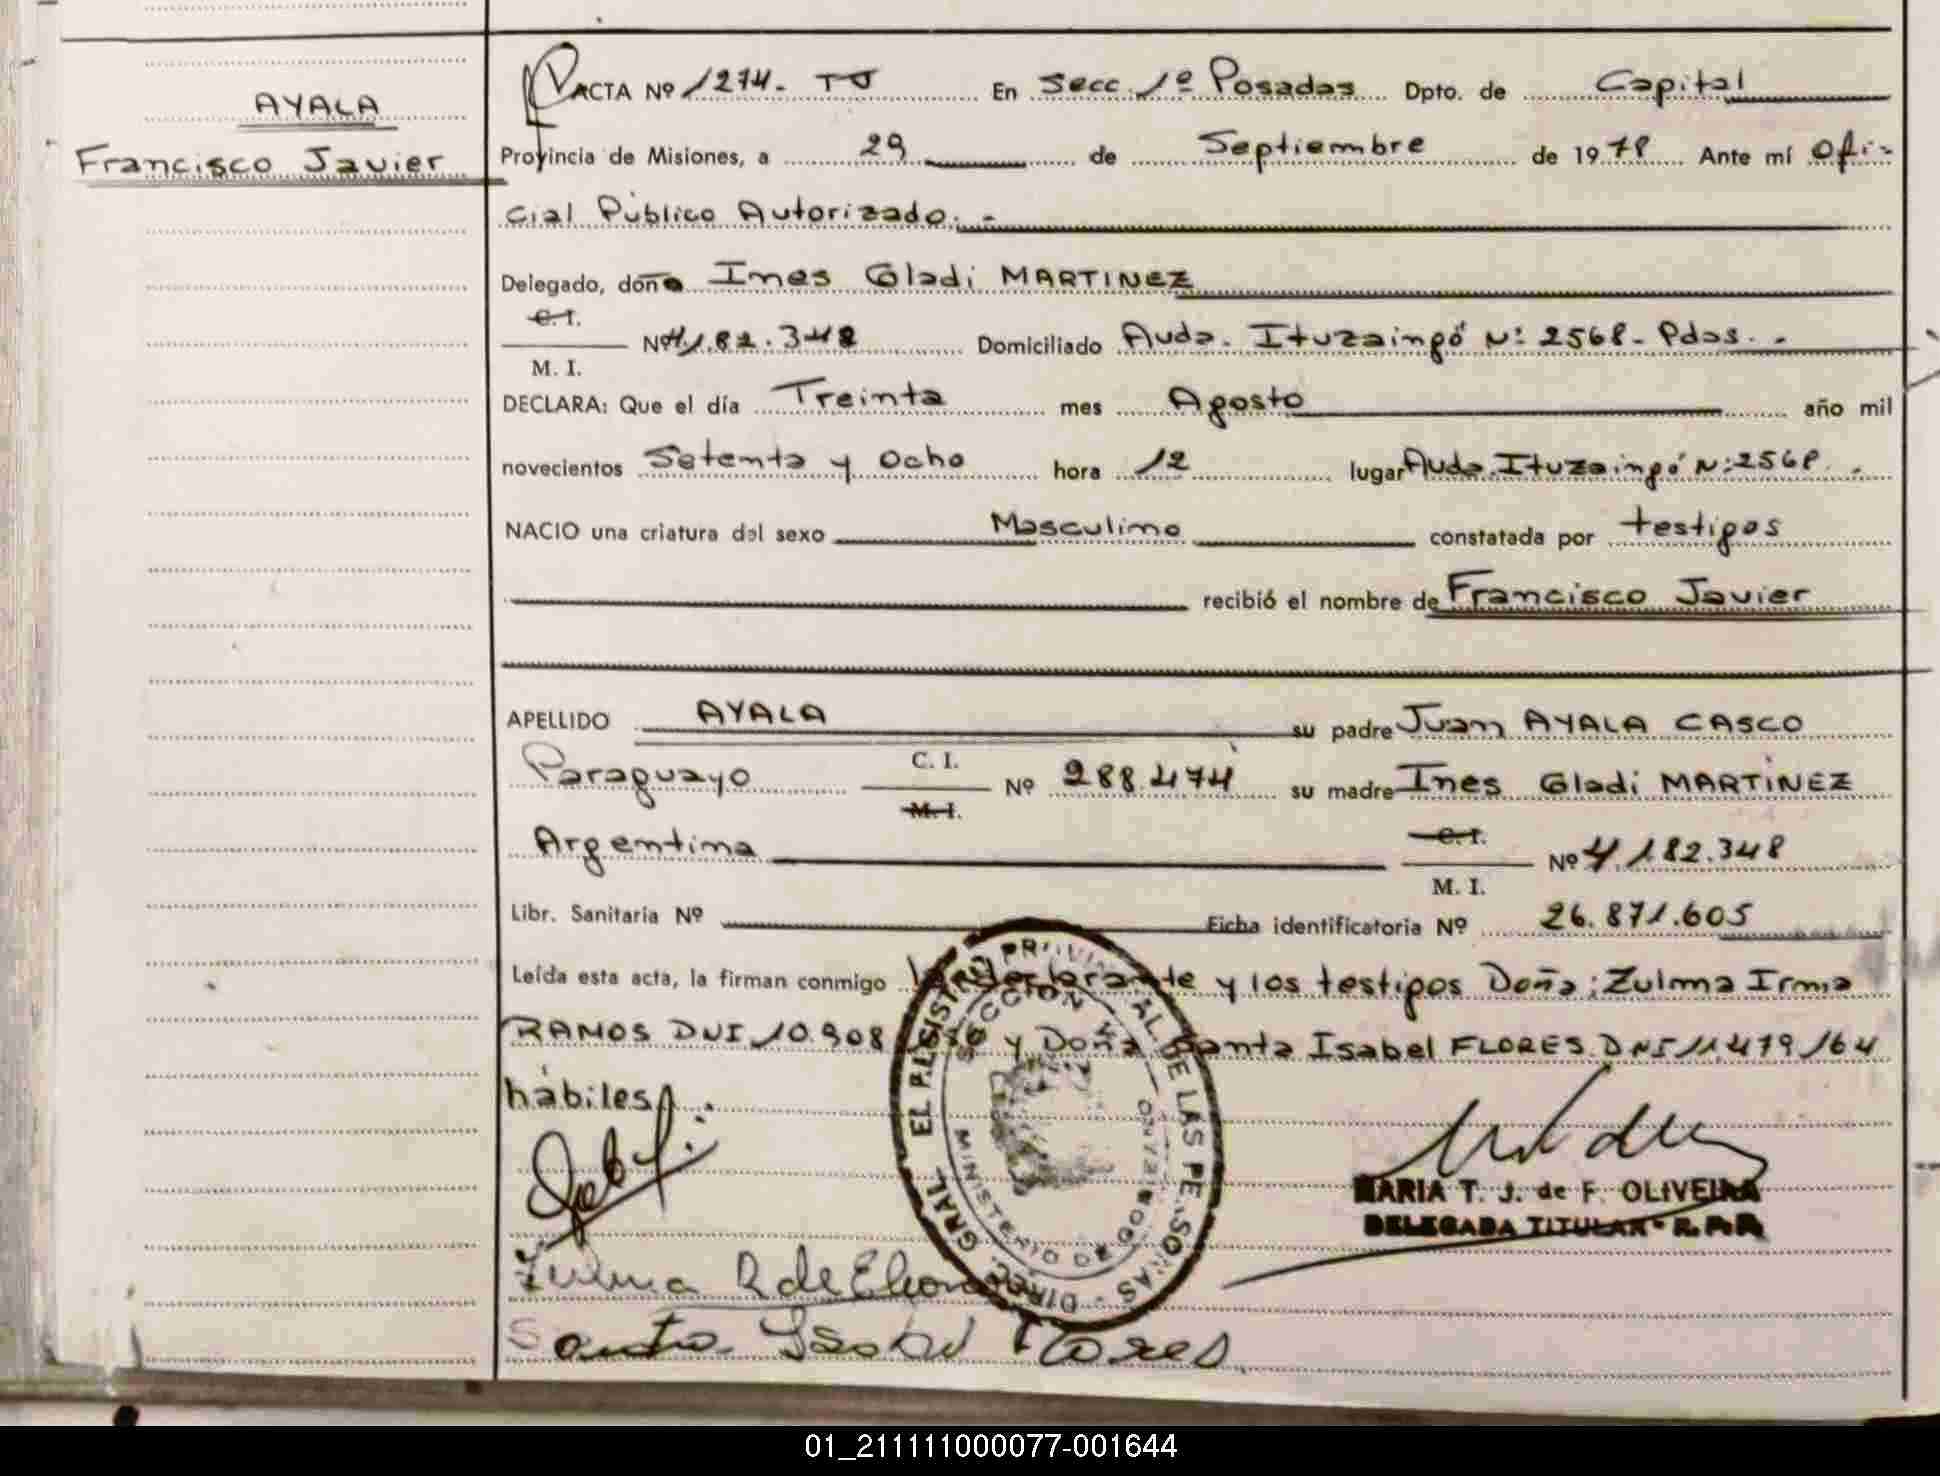 AYALA
Francisco Javier
ACTA Nº 1274. TJ En Secc. 1º Posadas Dpto. de Capital
Provincia de Misiones, a 29 de Septiembre de 1978 Ante mí Ofi-
cial Público Autorizado. -
Delegado, doña Ines Gladi MARTINEZ
C. I.
M. I.
Nº 4.182.348 Domiciliado Avda. Ituzaingó Nº 2568 - Pdas. -
DECLARA: Que el día Treinta mes Agosto año mil
novecientos Setenta y Ocho hora 12 lugar Avda. Ituzaingó Nº 2568. -
NACIO una criatura del sexo Masculino constatada por testigos
recibió el nombre de Francisco Javier
APELLIDO AYALA su padre Juan AYALA CASCO
Paraguayo C. I. M. I. Nº 288.474 su madre Ines Gladi MARTINEZ
Argentina C. I. M. I. Nº 4.182.348
Libr. Sanitaria Nº Ficha identificatoria Nº 26.871.605
Leída esta acta, la firman conmigo la declarante y los testigos Doña: Zulma Irma
RAMOS DNI 10.908 y Doña Santa Isabel FLORES DNI 11.479.164
hábiles
Zulma R de
Santa Isabel Flores
DIREC. GRAL. DEL REGISTRO PROVINCIAL DE LAS PERSONAS
SECCION
MINISTERIO DE GOBIERNO
MARIA T. J. de F. OLIVEIRA
DELEGADA TITULAR R.P.P.
01_211111000077-001644